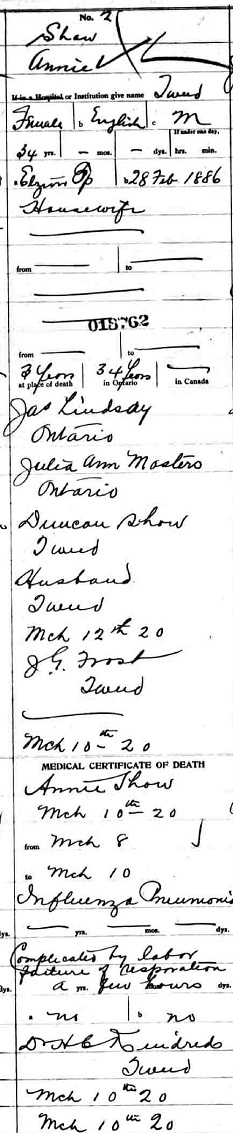 No. 2
Shaw
Annie
If in a Hospital or Institution give name Tweed
Female b English c M
If under one day,
34 yrs. — mos. — dys. hrs. min.
a Elzevir Tp b 28 Feb 1886
Housewife
from to
015762
from to
3 Years 34 Years
at place of death in Ontario in Canada
Jas Lindsay
Ontario
Julia Ann Masters
Ontario
Duncan Shaw
Tweed
Husband
Tweed
Mch 12th 20
J.G. Frost
Tweed
Mch 10th 20
MEDICAL CERTIFICATE OF DEATH
Annie Shaw
Mch 10th 20
from Mch 8
to Mch 10
Influenza Pneumonia
yrs. mos. dys.
Complicated by labor
failure of respiration
a yrs. few hours dys.
a no b no
Dr H C Kindred
Tweed
Mch 10th 20
Mch 10th 20